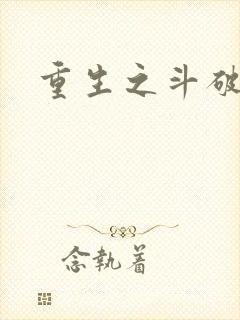 重生之斗破
念执着